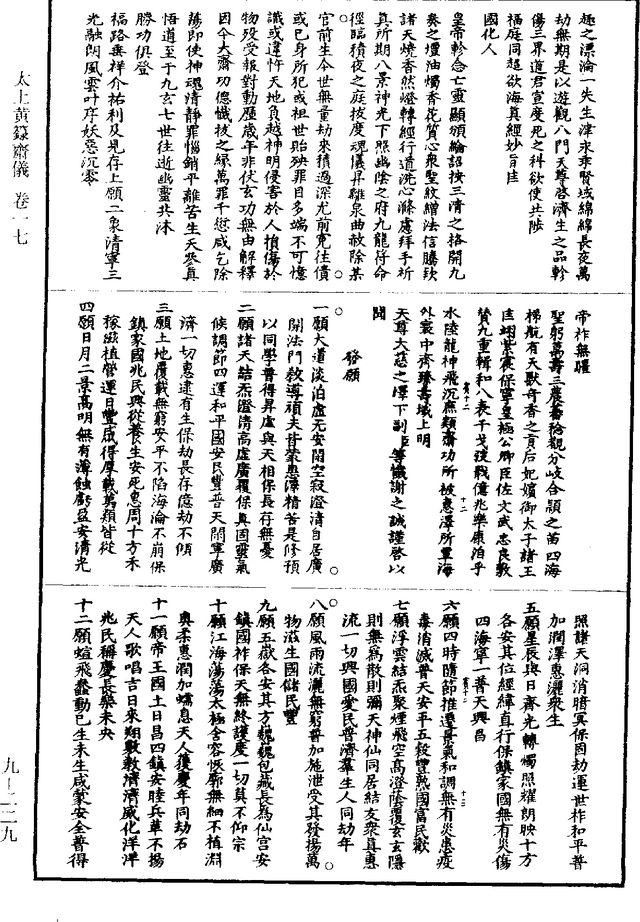 趣之漂淪一失生津永乖賢域綿綿長夜萬
劫無期是以遊觀八門天尊啓濟生之品軫
傷三界道君宣度死之科欲使共陟
福庭同超欲海真經妙旨佳
國化人
皇帝軫念亡靈顯頒綸詔按三清之格開九
炎之壇油燭香花質心衆聖紋繒法信騰欵
諸天燒香然燈轉經行道洗心滌慮拜手祈
真所期八景神光下照幽陰之府九龍符命
徑臨積夜之庭拔度魂儀昇離泉曲赦除某
官前生今世無量劫來積過深尤前寃往債
或巳身所犯或祖世貽殃罪目多端不可憶
識或違忤天地負越神明侵害於人損傷於
物殁受報對動歷歲年非伏玄功無由解釋
因今大齋功德懺拔之緣萬罪千愆咸乞除
蕩即使神魂清靜罪惱銷平離苦生天參真
悟道至于九玄七世往逝幽靈共沐
勝功俱登
福路垂祥介祐利及見存上願二象清寧三
光融朗風雲叶序妖惡沉零
太上黄籙齋儀 卷一七
帝祚無疆
聖躬萬壽三農薦稔觀分岐合頴之苗四海
梯航有天獸奇香之貢后妃嬪御太子諸王
佳翊紫宸保寧皇極公卿臣佐文武忠良敷
贊九重輯和八表干戈戢億兆樂康洎乎
水陸龍神飛沉庶類齋功所被惠澤所覃海
外寰中齊臻壽域上明
天尊大慈之澤下副臣等懺謝之誠謹啓以
聞
發願
一願大道淡泊虛无安閑空寂澄清自居廣
開法門教導頑夫皆蒙惠澤精苦是修預
以同學普得昇虛與天相保長存無憂
二願諸天結炁澄清高虛廣覆保真固靈氣
候調節四運和平國安民豐普天閑寧廣
濟一切惠逮有生保劫長存億劫不傾
三願土地廣載無窮安平不陷海淪不崩保
鎮家國兆民興從養生安死惠周十方禾
稼滋植營運日豐咸得厚載萬類皆從
四願日月二景高明無有薄蝕虧盈安清光
照諸天洞消腤冥保固劫運世祚和平普
加潤澤惠灑衆生
五願星辰與日齊光轉燭照耀朗映十方
各安其位經緯直行保鎮家國無有災傷
四海寧一普天興昌
六願四時隨節推遷景氣和調無有災患疫
毒消滅普天安平五穀豐熟國富民歡
七願浮雲結炁聚煙飛空高澄蔭覆玄玄隱
則無為散則彌天神仙同居結友衆真惠
流一切興國愛民普濟羣生人同劫年
八願風雨流灑無窮普加施泄受其發揚萬
物滋生國儲民豐
九願五嶽各安其方巍巍包藏長為仙宫安
鎮國祚保天無終護度一切莫不仰宗
十願江海蕩蕩太極含容恢廓無細不植淵
奥柔惠潤加蠕息天人獲慶年同劫石
十一願帝王國土日昌四鎮安睦兵革不揚
天人歌唱吉日來翔敷敷濟濟威化洋洋
兆民稱慶長樂未央
十二願蝖飛蠢動巳生未生咸蒙安全普得
九-二二九